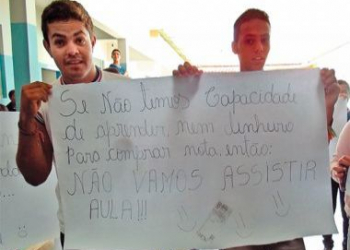 Se Não temos Capacidade
de aprender, nem dinheiro
Para comprar nota, então:
NÃO VAMOS ASSISTIR
AULA!!!